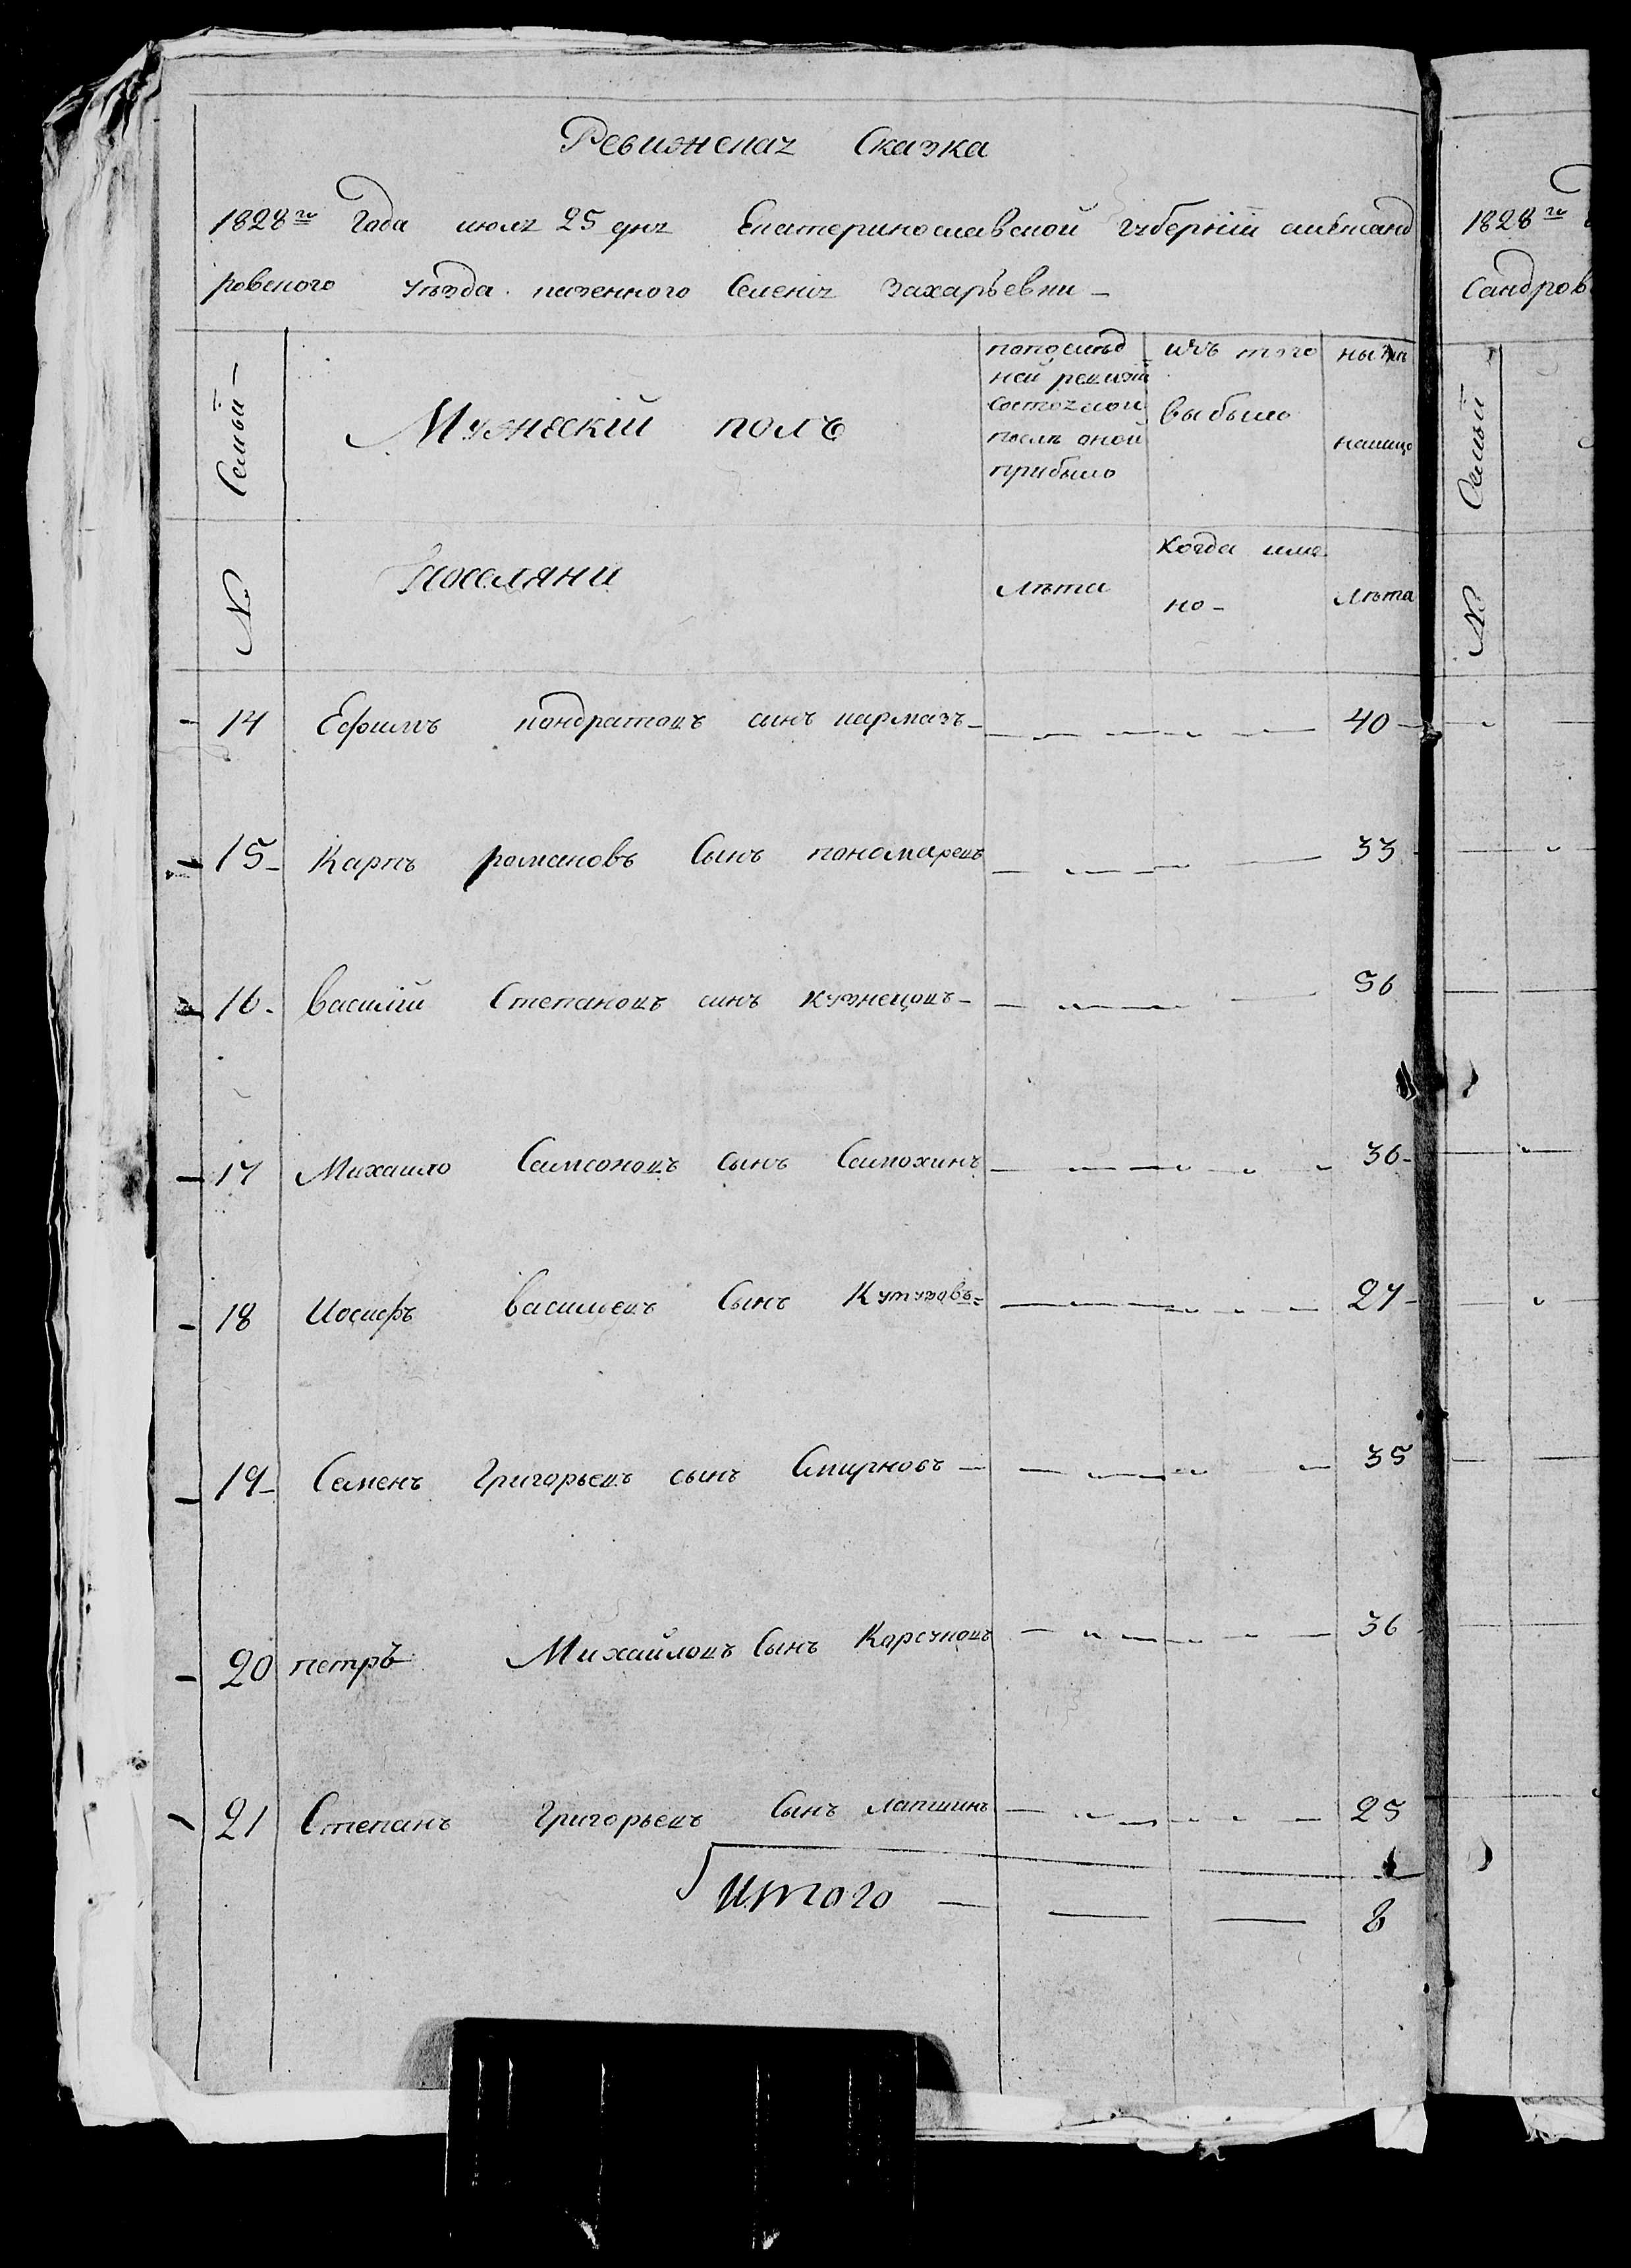 Ревизская Сказка
1828го Года июля 25 дня Екатеринославской губернiи александ
ровского уезда казенного Селения Захарьевки –
Семьи –
Мужескiй полъ
попослед
ней ревизiи
состояло и
после оной
прибыло
изъ того
выбыло
ныне
налицо
№
Поселяни
лета
Когда имя
но –
лета
14 Ефимъ кондратовъ синъ кармазъ – 40 –
15 – Карпъ романовъ Сынъ пономаревъ 33
16 – Василiй Степановъ синъ кузнецовъ – 56
17 Михаило Самсоновъ сынъ Самохинъ 36 –
18 Иосифъ васильевъ Сынъ Кутузовъ – 27 –
19 – Семенъ Григорьевъ сынъ Смирновъ – 35
20 петръ Михайловъ Сынъ Корсуновъ 36
21 Степанъ Григорьевъ Сынъ лапшинъ 25
Итого – 8
1828го
Сандров
Семьи
№